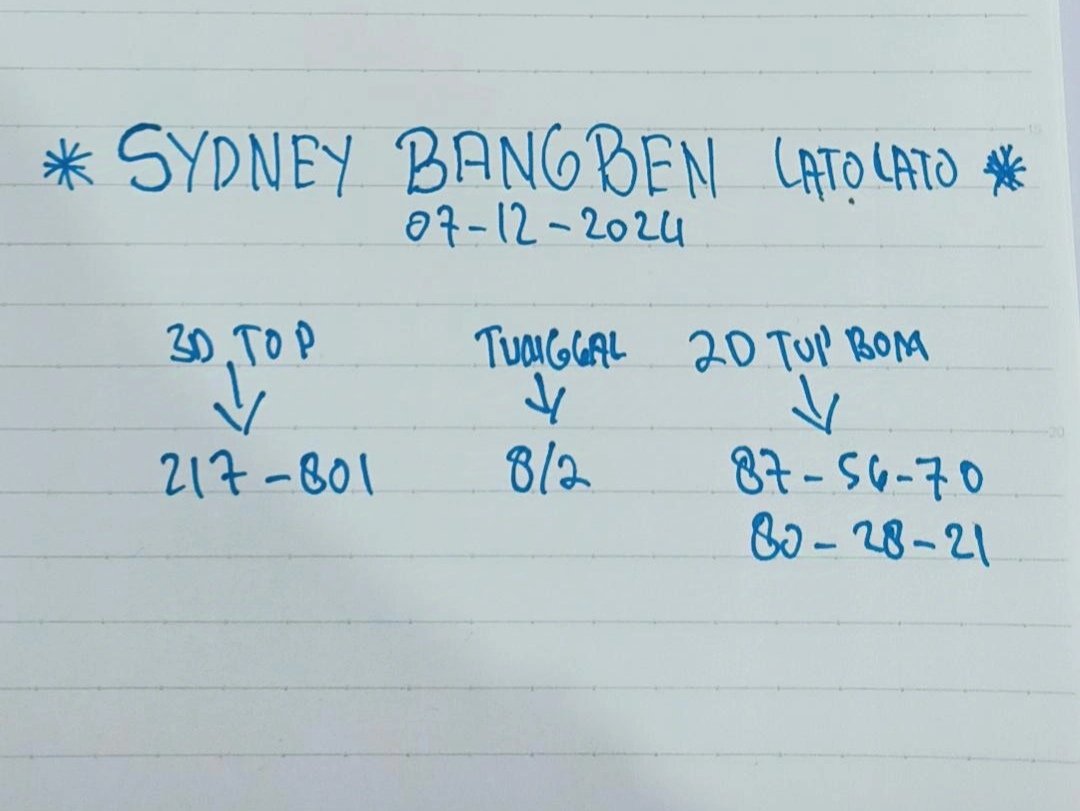 * SYDNEY BANGBEN LATOLATO *
07-12-2024
3D TOP TUNGGAL 2D TOP BOM
217-801 8/2 87-56-70
80-28-21